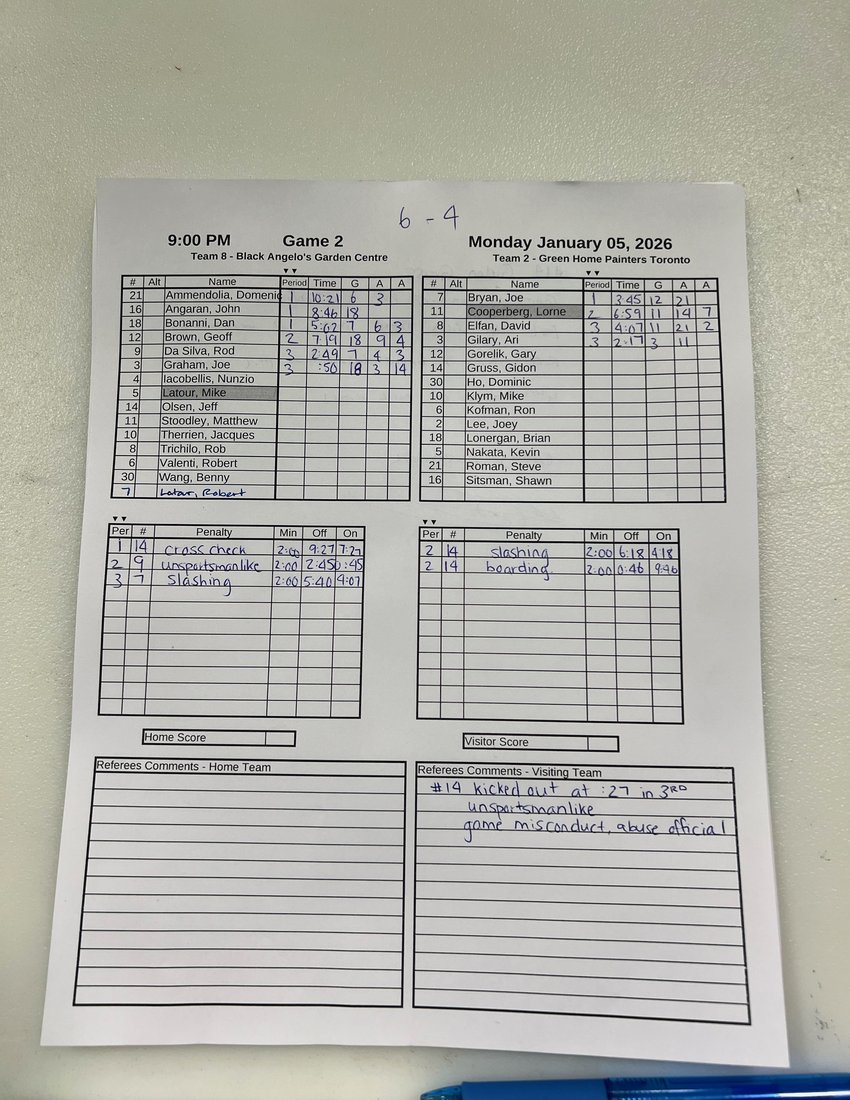 6 - 4
9:00 PM Game 2 Monday January 05, 2026
Team 8 - Black Angelo's Garden Centre
Team 2 - Green Home Painters Toronto
▼▼
# Alt Name Period Time G A A
21 Ammendolia, Domenic 1 10:21 6 3
16 Angaran, John 1 8:46 18
18 Bonanni, Dan 1 5:02 7 6 3
12 Brown, Geoff 2 7:19 18 9 4
9 Da Silva, Rod 3 2:49 7 4 3
3 Graham, Joe 3 :50 18 3 14
4 Iacobellis, Nunzio
5 Latour, Mike
14 Olsen, Jeff
11 Stoodley, Matthew
10 Therrien, Jacques
8 Trichilo, Rob
6 Valenti, Robert
30 Wang, Benny
7 Latour, Robert
▼▼
# Alt Name Period Time G A A
7 Bryan, Joe 1 3:45 12 21
11 Cooperberg, Lorne 2 6:59 11 14 7
8 Elfan, David 3 4:07 11 21 2
3 Gilary, Ari 3 2:17 3 11
12 Gorelik, Gary
14 Gruss, Gidon
30 Ho, Dominic
10 Klym, Mike
6 Kofman, Ron
2 Lee, Joey
18 Lonergan, Brian
5 Nakata, Kevin
21 Roman, Steve
16 Sitsman, Shawn
▼▼
Per # Penalty Min Off On
1 14 cross check 2:00 9:27 7:27
2 9 unsportsmanlike 2:00 2:45 0:45
3 7 slashing 2:00 5:40 4:07
▼▼
Per # Penalty Min Off On
2 14 slashing 2:00 6:18 4:18
2 14 boarding 2:00 0:46 9:46
Home Score
Visitor Score
Referees Comments - Home Team
Referees Comments - Visiting Team
#14 kicked out at :27 in 3RD
unsportsmanlike
game misconduct, abuse official